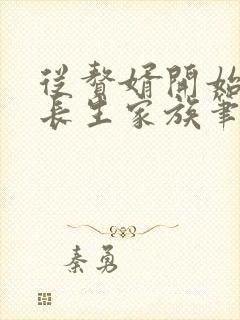 從贅婿開始
長生家族筆
秦勇